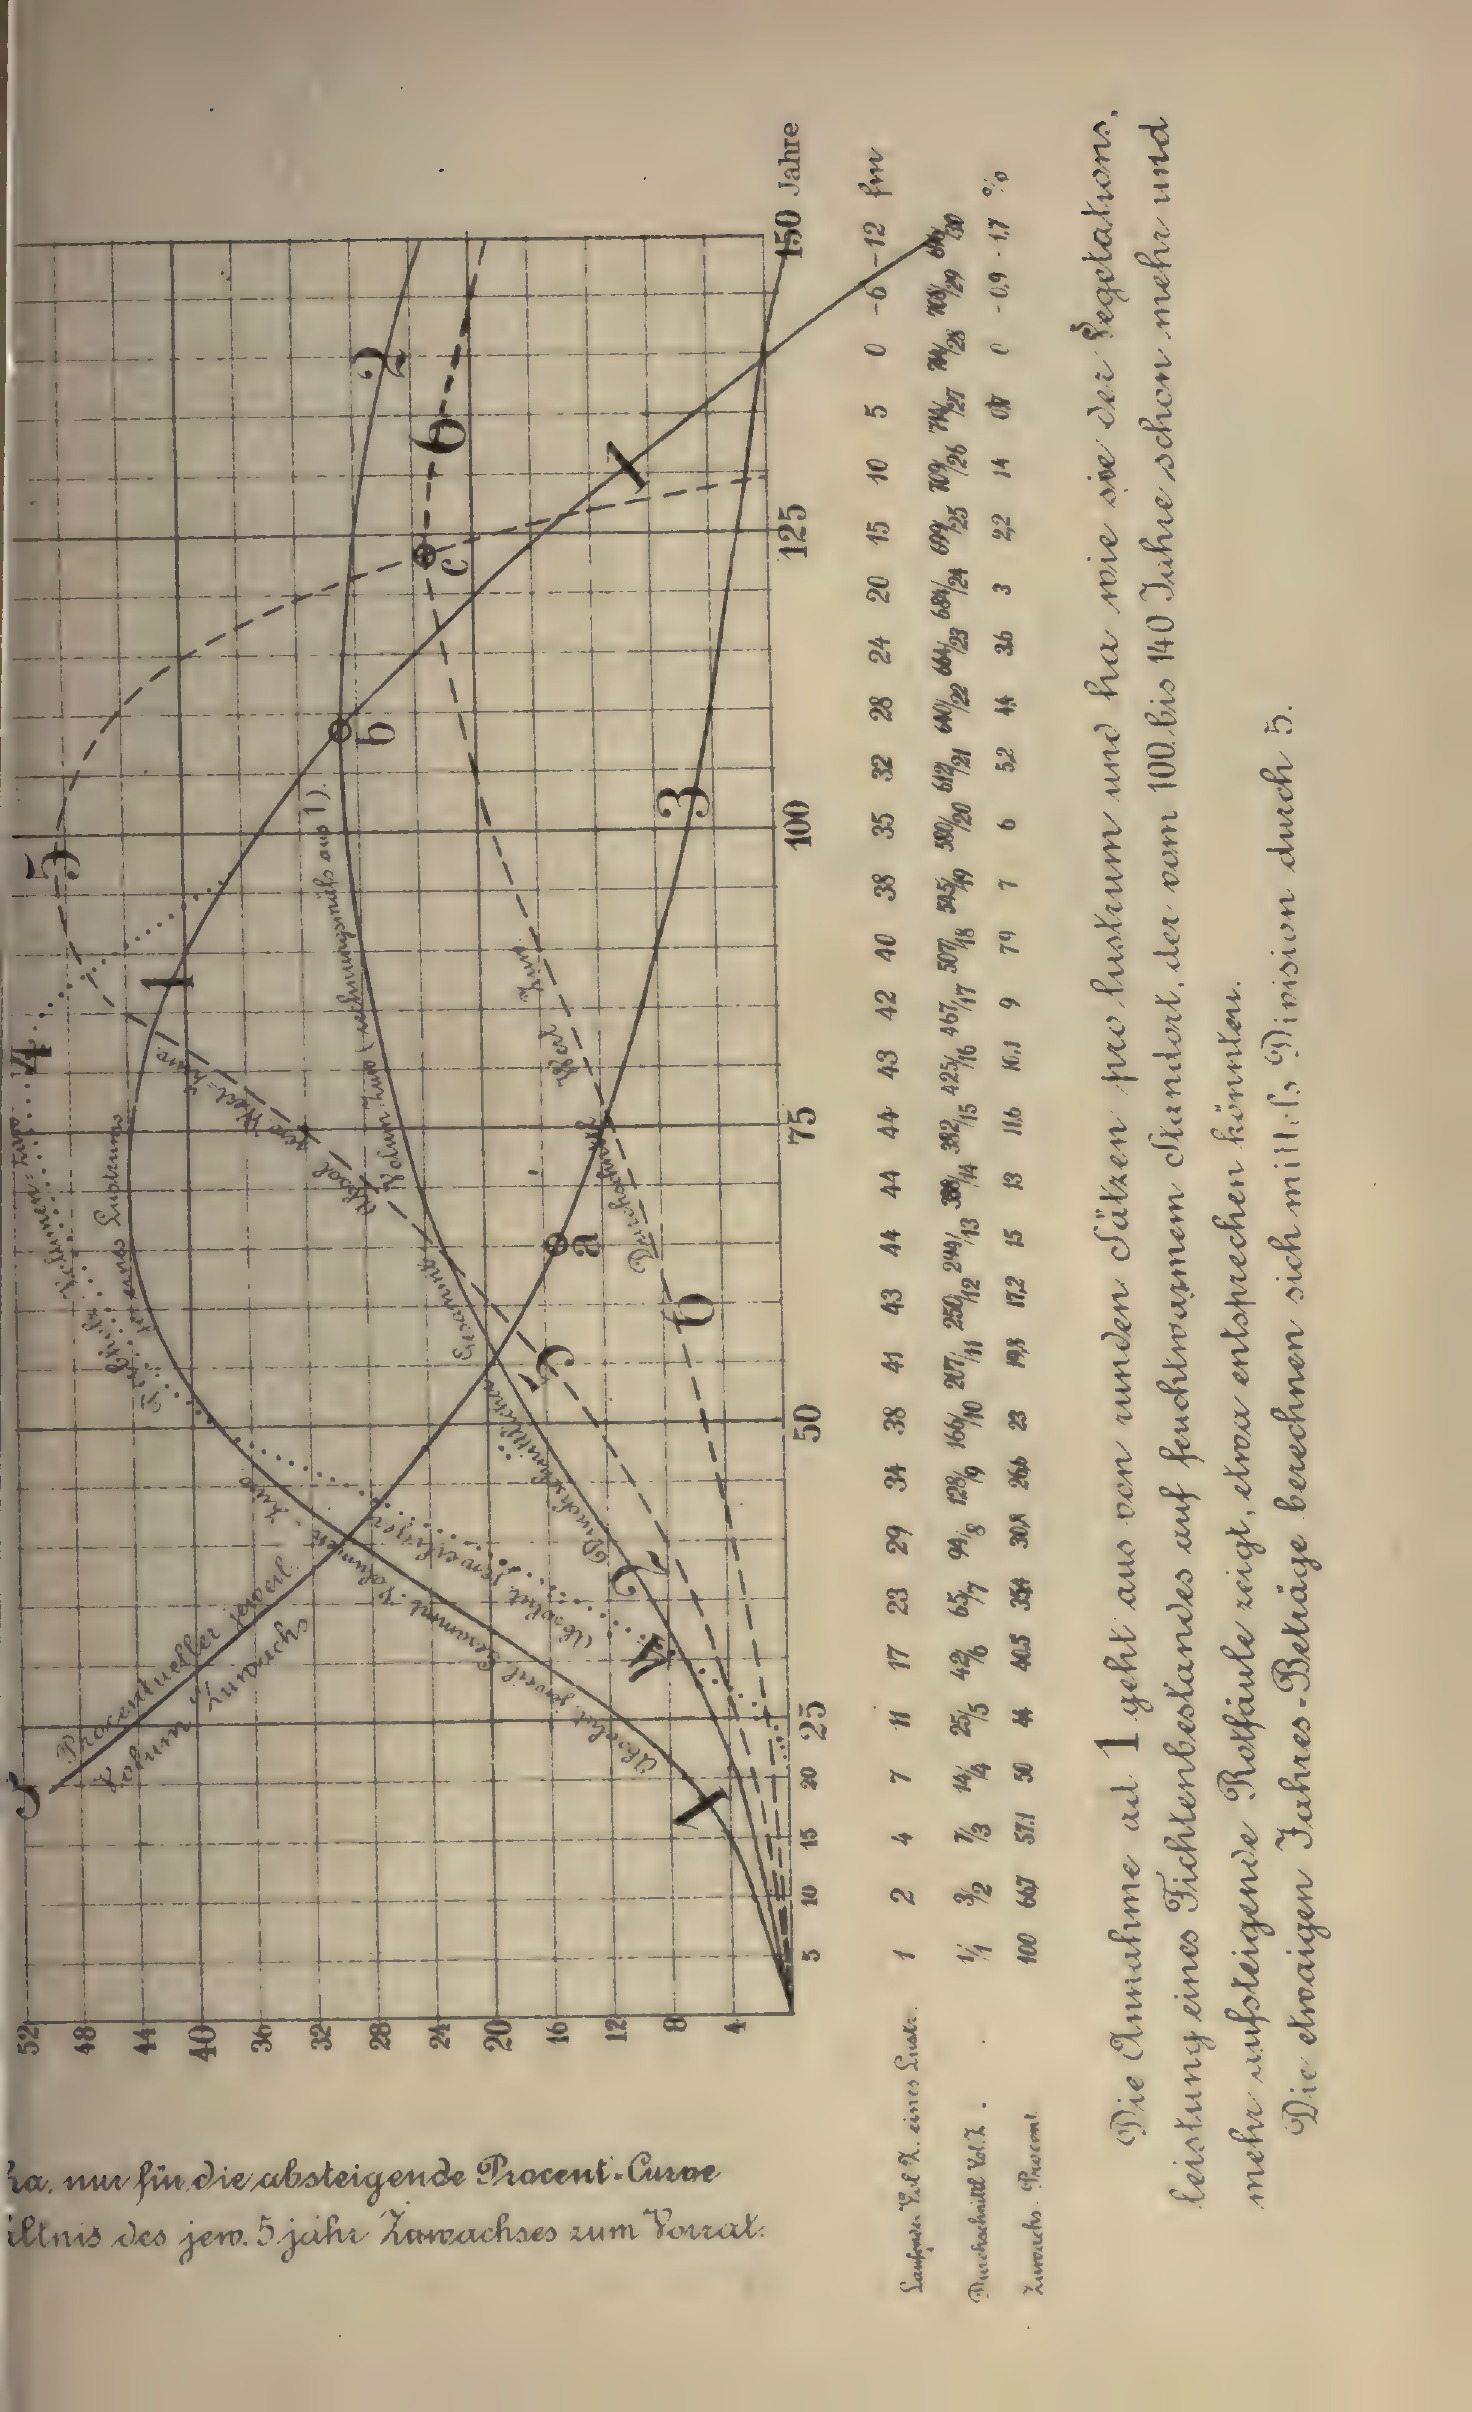 ha. nur für die absteigende Procent-Curve
ältnis des jew. 5 jähr Zuwachses zum Vorrat.
52
48
44
40
36
32
28
24
20
16
12
8
4
Procentueller jeweil.
Volum Zuwachs
Absolut. jeweil. Gesammt. Volumen - Zuw
eines Lustrums
Absolut. jeweiliger
Volumen-Zuw
Durchschnittlicher Gesammt Volum Zuw (rechnungsmäß aus 1).
Absol Wert Zuw.
Durchschnittl. Wert Zuw.
1
1
1
2
2
3
3
4
4
5
5
6
6
a
b
c
5 10 15 20 25 50 75 100 125 150 Jahre
Laufender Vol Z. eines Lustr. 1 2 4 7 11 17 23 29 34 38 41 43 44 44 44 43 42 40 38 35 32 28 24 20 15 10 5 0 -6 -12 fm
Durchschnittl Vol. Z. 1/1 3/2 7/3 14/4 25/5 42/6 65/7 94/8 128/9 166/10 207/11 250/12 294/13 382/15 425/16 467/17 507/18 545/19 580/20 612/21 640/22 664/23 684/24 699/25 709/26 714/27 714/28 708/29
Zuwachs Procent. 100 66,7 57,1 50 44 40,5 35,4 30,8 26,6 23 19,8 17,2 15 13 11,6 10,1 9 7,9 7 6 5,2 4,4 3,6 3 2,2 1,4 0,7 0 -0,9 -1,7 %
Die Annahme ad 1 geht aus von runden Sätzen pro Lustrum und ha wie sie der Vegetations-
leistung eines Fichtenbestandes auf feuchtwarmem Standort, der vom 100. bis 140 Jahre schon mehr und
mehr aufsteigende Rotfäule zeigt, etwa entsprechen könnten.
Die etwaigen Jahres-Beträge berechnen sich mittels Division durch 5.